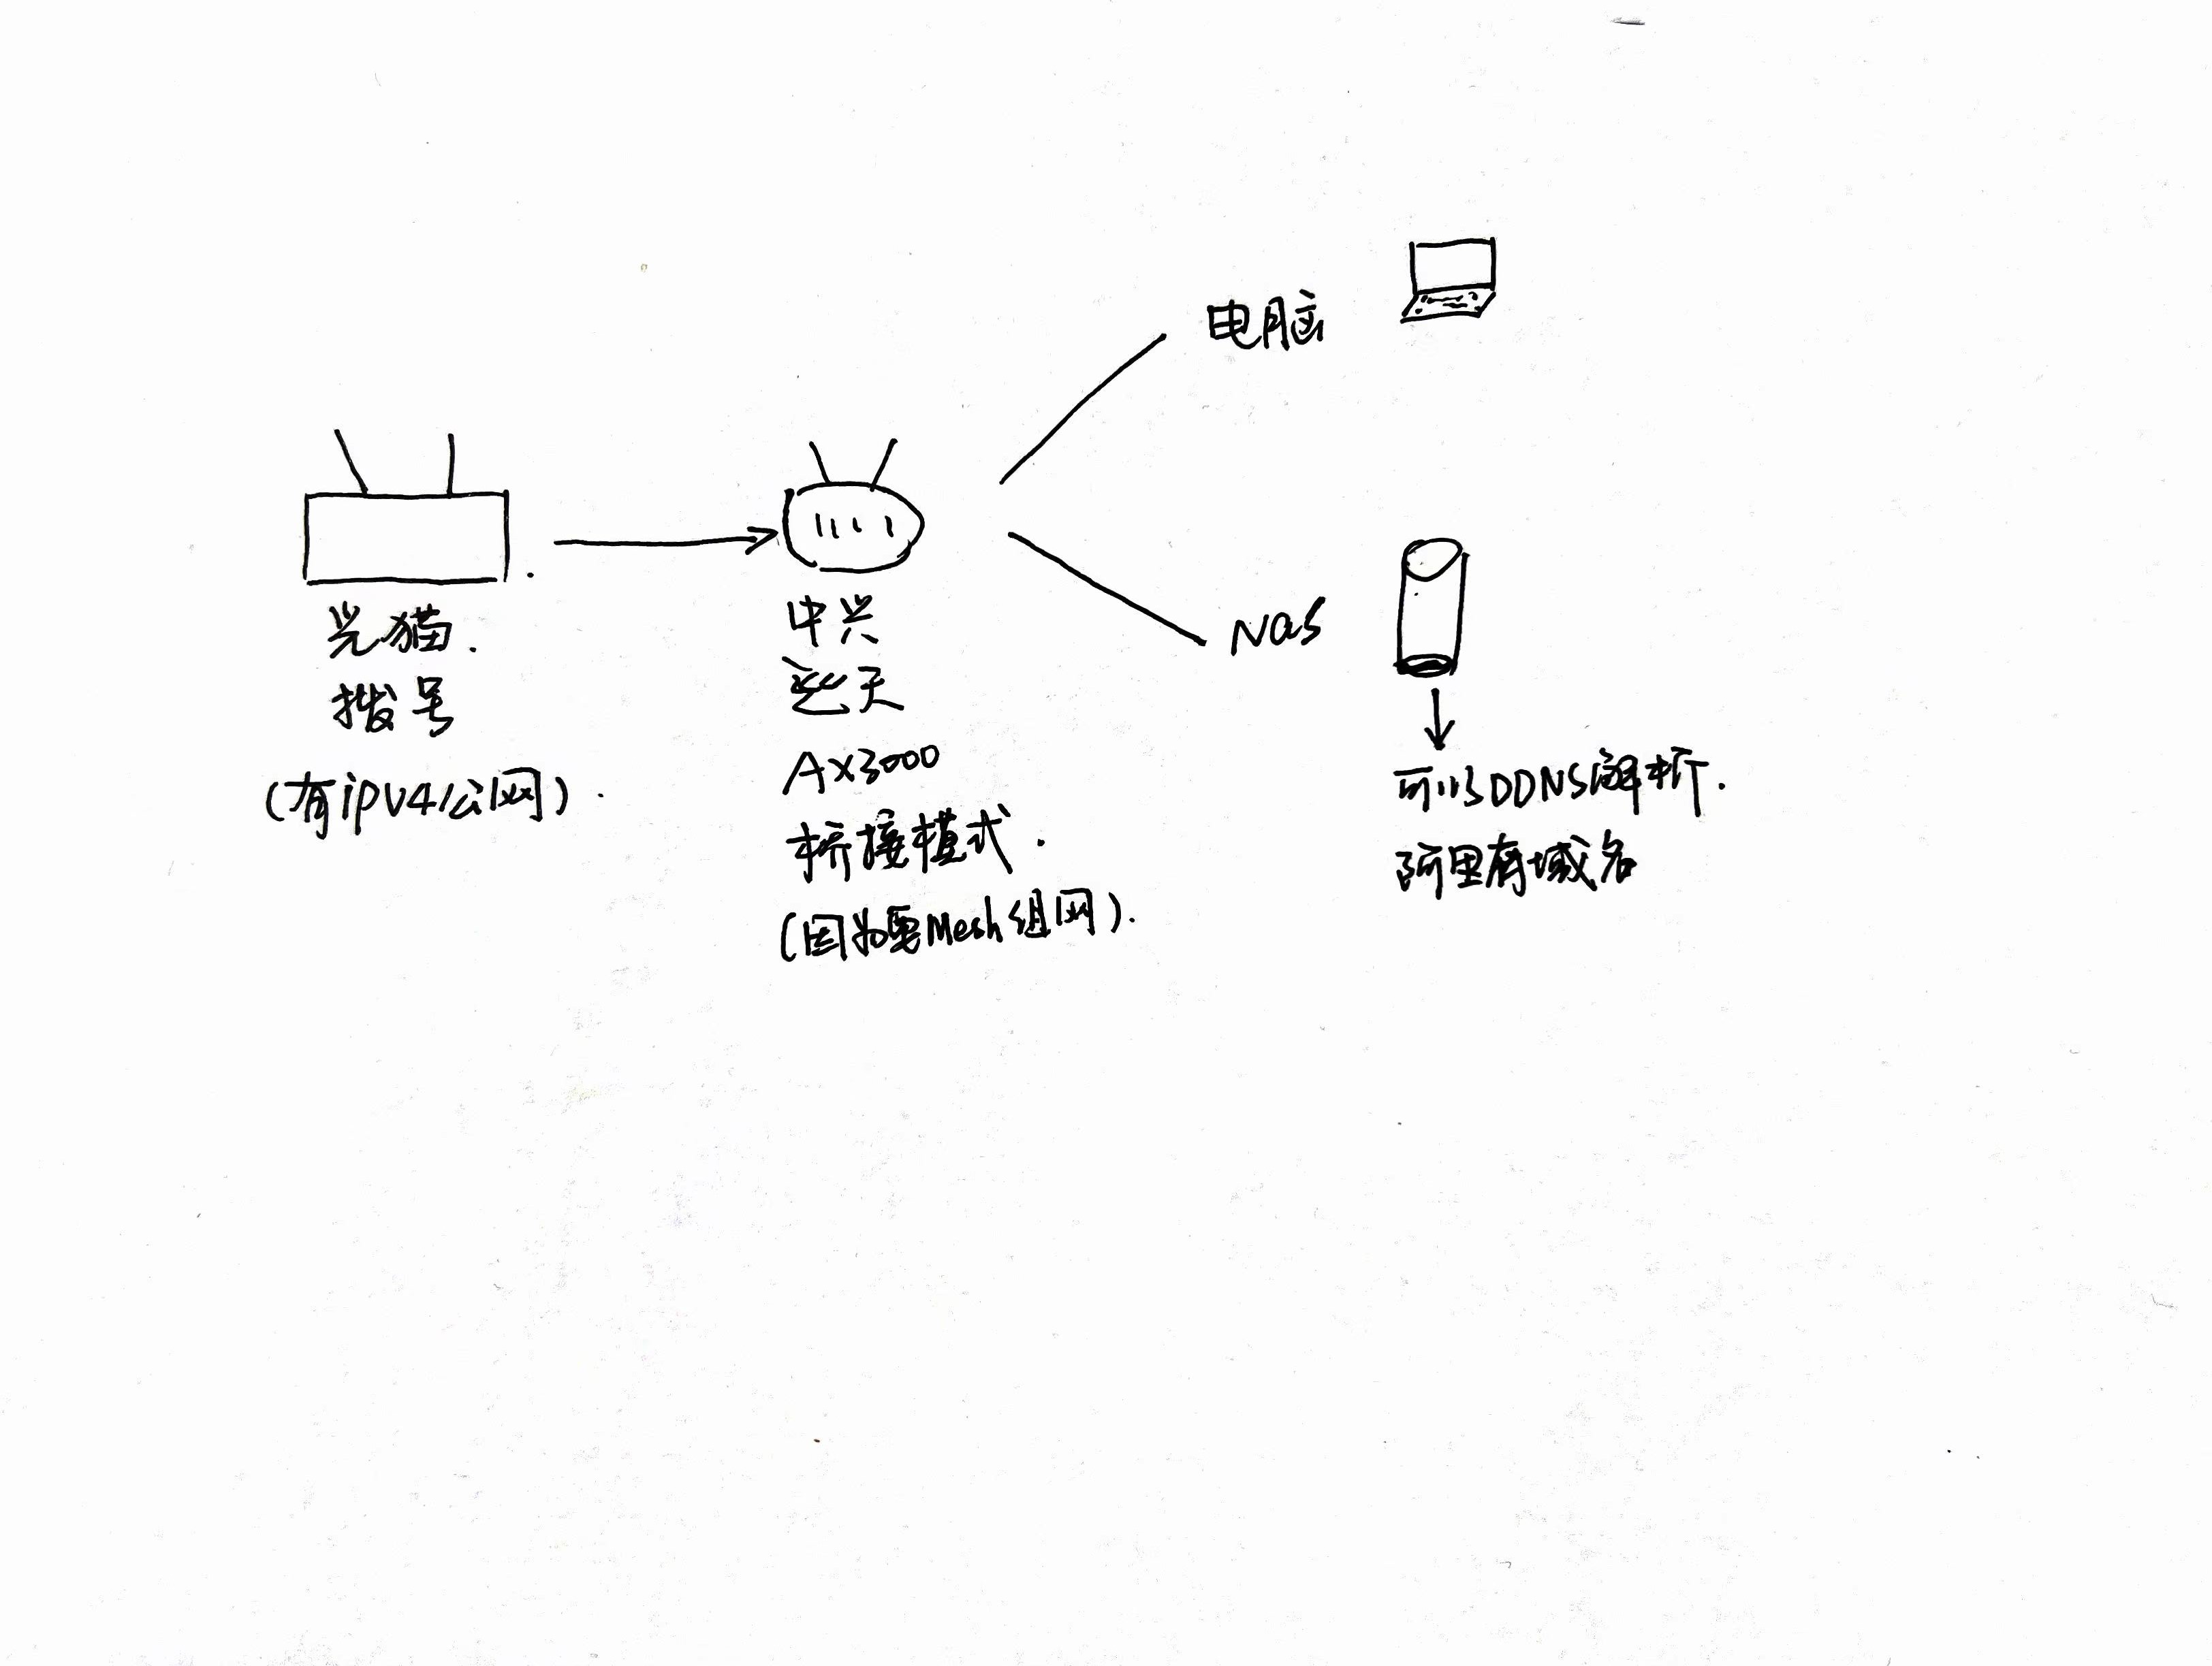 光猫.
拨号
(有ipv4公网).
中兴
巡天
AX3000
桥接模式.
(因为要Mesh组网).
电脑
Nas
可以DDNS解析.
阿里有域名